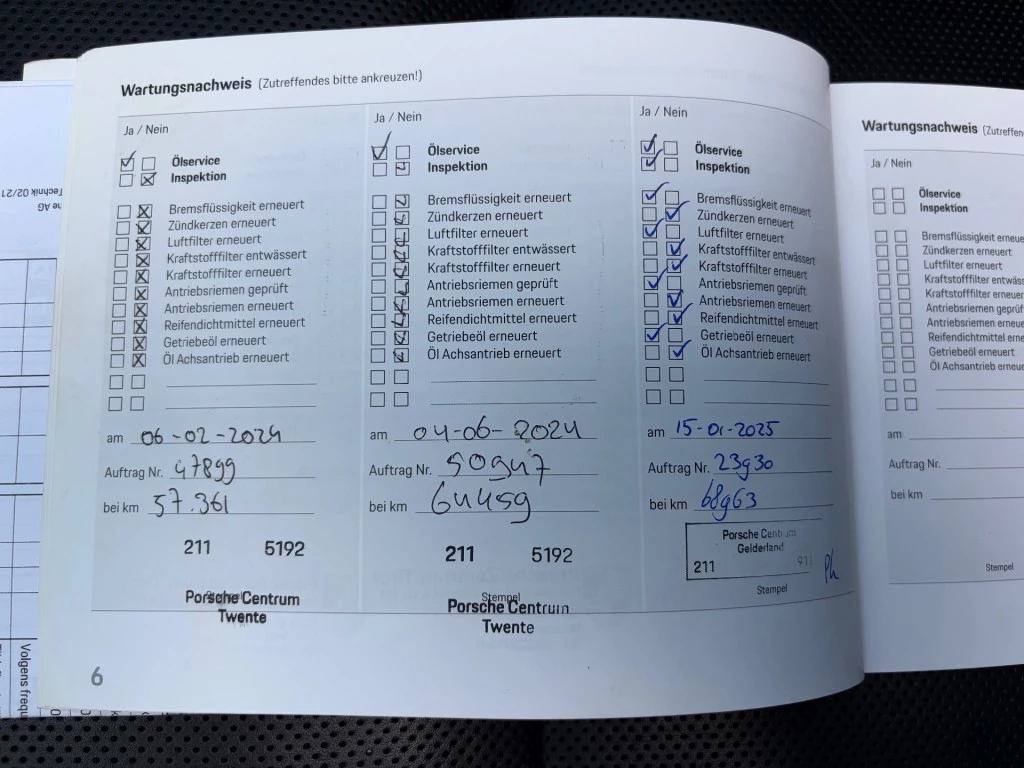 Wartungsnachweis (Zutreffendes bitte ankreuzen!)
Ja / Nein
Ölservice
Inspektion
Bremsflüssigkeit erneuert
Zündkerzen erneuert
Luftfilter erneuert
Kraftstofffilter entwässert
Kraftstofffilter erneuert
Antriebsriemen geprüft
Antriebsriemen erneuert
Reifendichtmittel erneuert
Getriebeöl erneuert
Öl Achsantrieb erneuert
am 06-02-2024
Auftrag Nr. 47899
bei km 57.361
211 5192
Stempel
Porsche Centrum
Twente
Ja / Nein
Ölservice
Inspektion
Bremsflüssigkeit erneuert
Zündkerzen erneuert
Luftfilter erneuert
Kraftstofffilter entwässert
Kraftstofffilter erneuert
Antriebsriemen geprüft
Antriebsriemen erneuert
Reifendichtmittel erneuert
Getriebeöl erneuert
Öl Achsantrieb erneuert
am 04-06-2024
Auftrag Nr. 50947
bei km 64459
211 5192
Stempel
Porsche Centrum
Twente
Ja / Nein
Ölservice
Inspektion
Bremsflüssigkeit erneuert
Zündkerzen erneuert
Luftfilter erneuert
Kraftstofffilter entwässert
Kraftstofffilter erneuert
Antriebsriemen geprüft
Antriebsriemen erneuert
Reifendichtmittel erneuert
Getriebeöl erneuert
Öl Achsantrieb erneuert
am 15-01-2025
Auftrag Nr. 23930
bei km 68963
Porsche Centrum
Gelderland
211
Stempel
6
Wartungsnachweis
Ja / Nein
Ölservice
Inspektion
Bremsflüssigkeit
Zündkerzen erneuert
Luftfilter erneuert
Kraftstofffilter
Kraftstofffilter
Antriebsriemen
Antriebsriemen
Reifendichtmittel
Getriebeöl erneuert
Öl Achsantrieb
am
Auftrag Nr.
bei km
Stempel
Technik 02/21
AG
Volgens